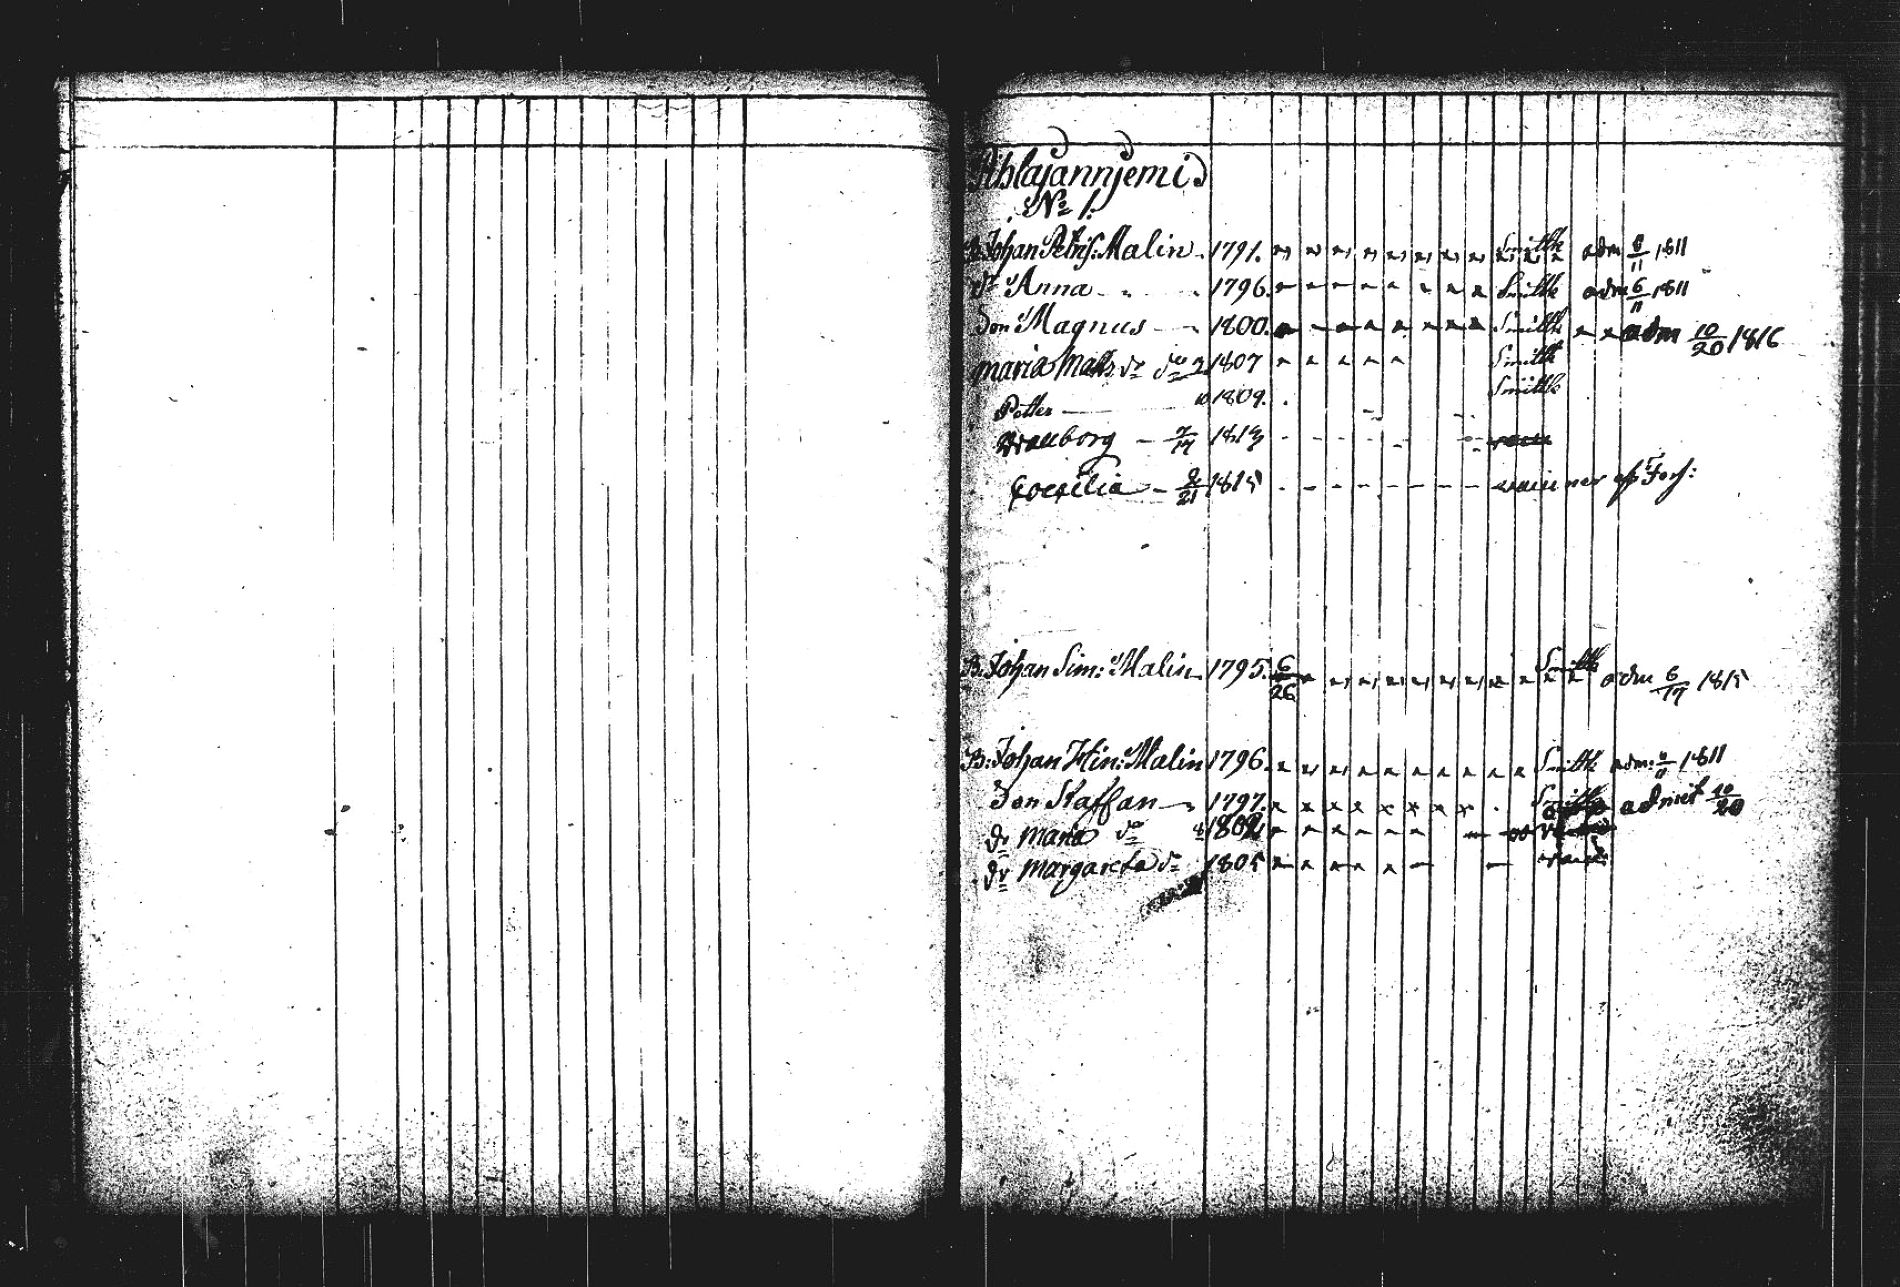 Ahlajannjemi
No 1.
B. Johan Petris: Malin. 1791. Smittk adm 6/11 1811
Dr Anna 1796. Smittk adm 6/11 1811
Son Magnus 1800. Smittk adm 10/20 1816
Maria Matts dr 1807 Smittk
Petter 1809. Smittk
Walborg 7/17 1813
Coecilia 2/21 1815
B. Johan Sim: Malin 1795. 6/26 Smittk adm 6/17 1815
B: Johan Hin: Malin 1796. Smittk adm: 6/11 1811
Son Staffan 1797. admit 10/20
dr Maria 1802
dr Margareta 1805